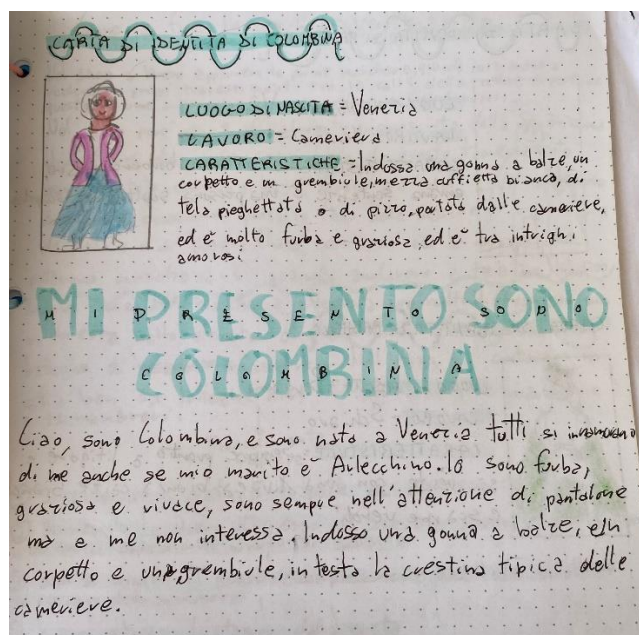 CARTA DI IDENTITÀ DI COLOMBINA
LUOGO DI NASCITA = Venezia
LAVORO = Cameriera
CARATTERISTICHE = Indossa una gonna a balze, un
corpetto e un grembiule, mezza cuffietta bianca, di
tela pieghettata o di pizzo, portata dalle cameriere,
ed è molto furba e graziosa, ed è tra intrighi
amorosi
MI PRESENTO SONO
COLOMBINA
Ciao, sono Colombina, e sono nata a Venezia tutti si innamorano
di me anche se mio marito è Arlecchino. Io sono furba,
graziosa e vivace, sono sempre nell'attenzione di pantalone
ma a me non interessa. Indosso una gonna a balze, un
corpetto e un grembiule, in testa la crestina tipica delle
cameriere.